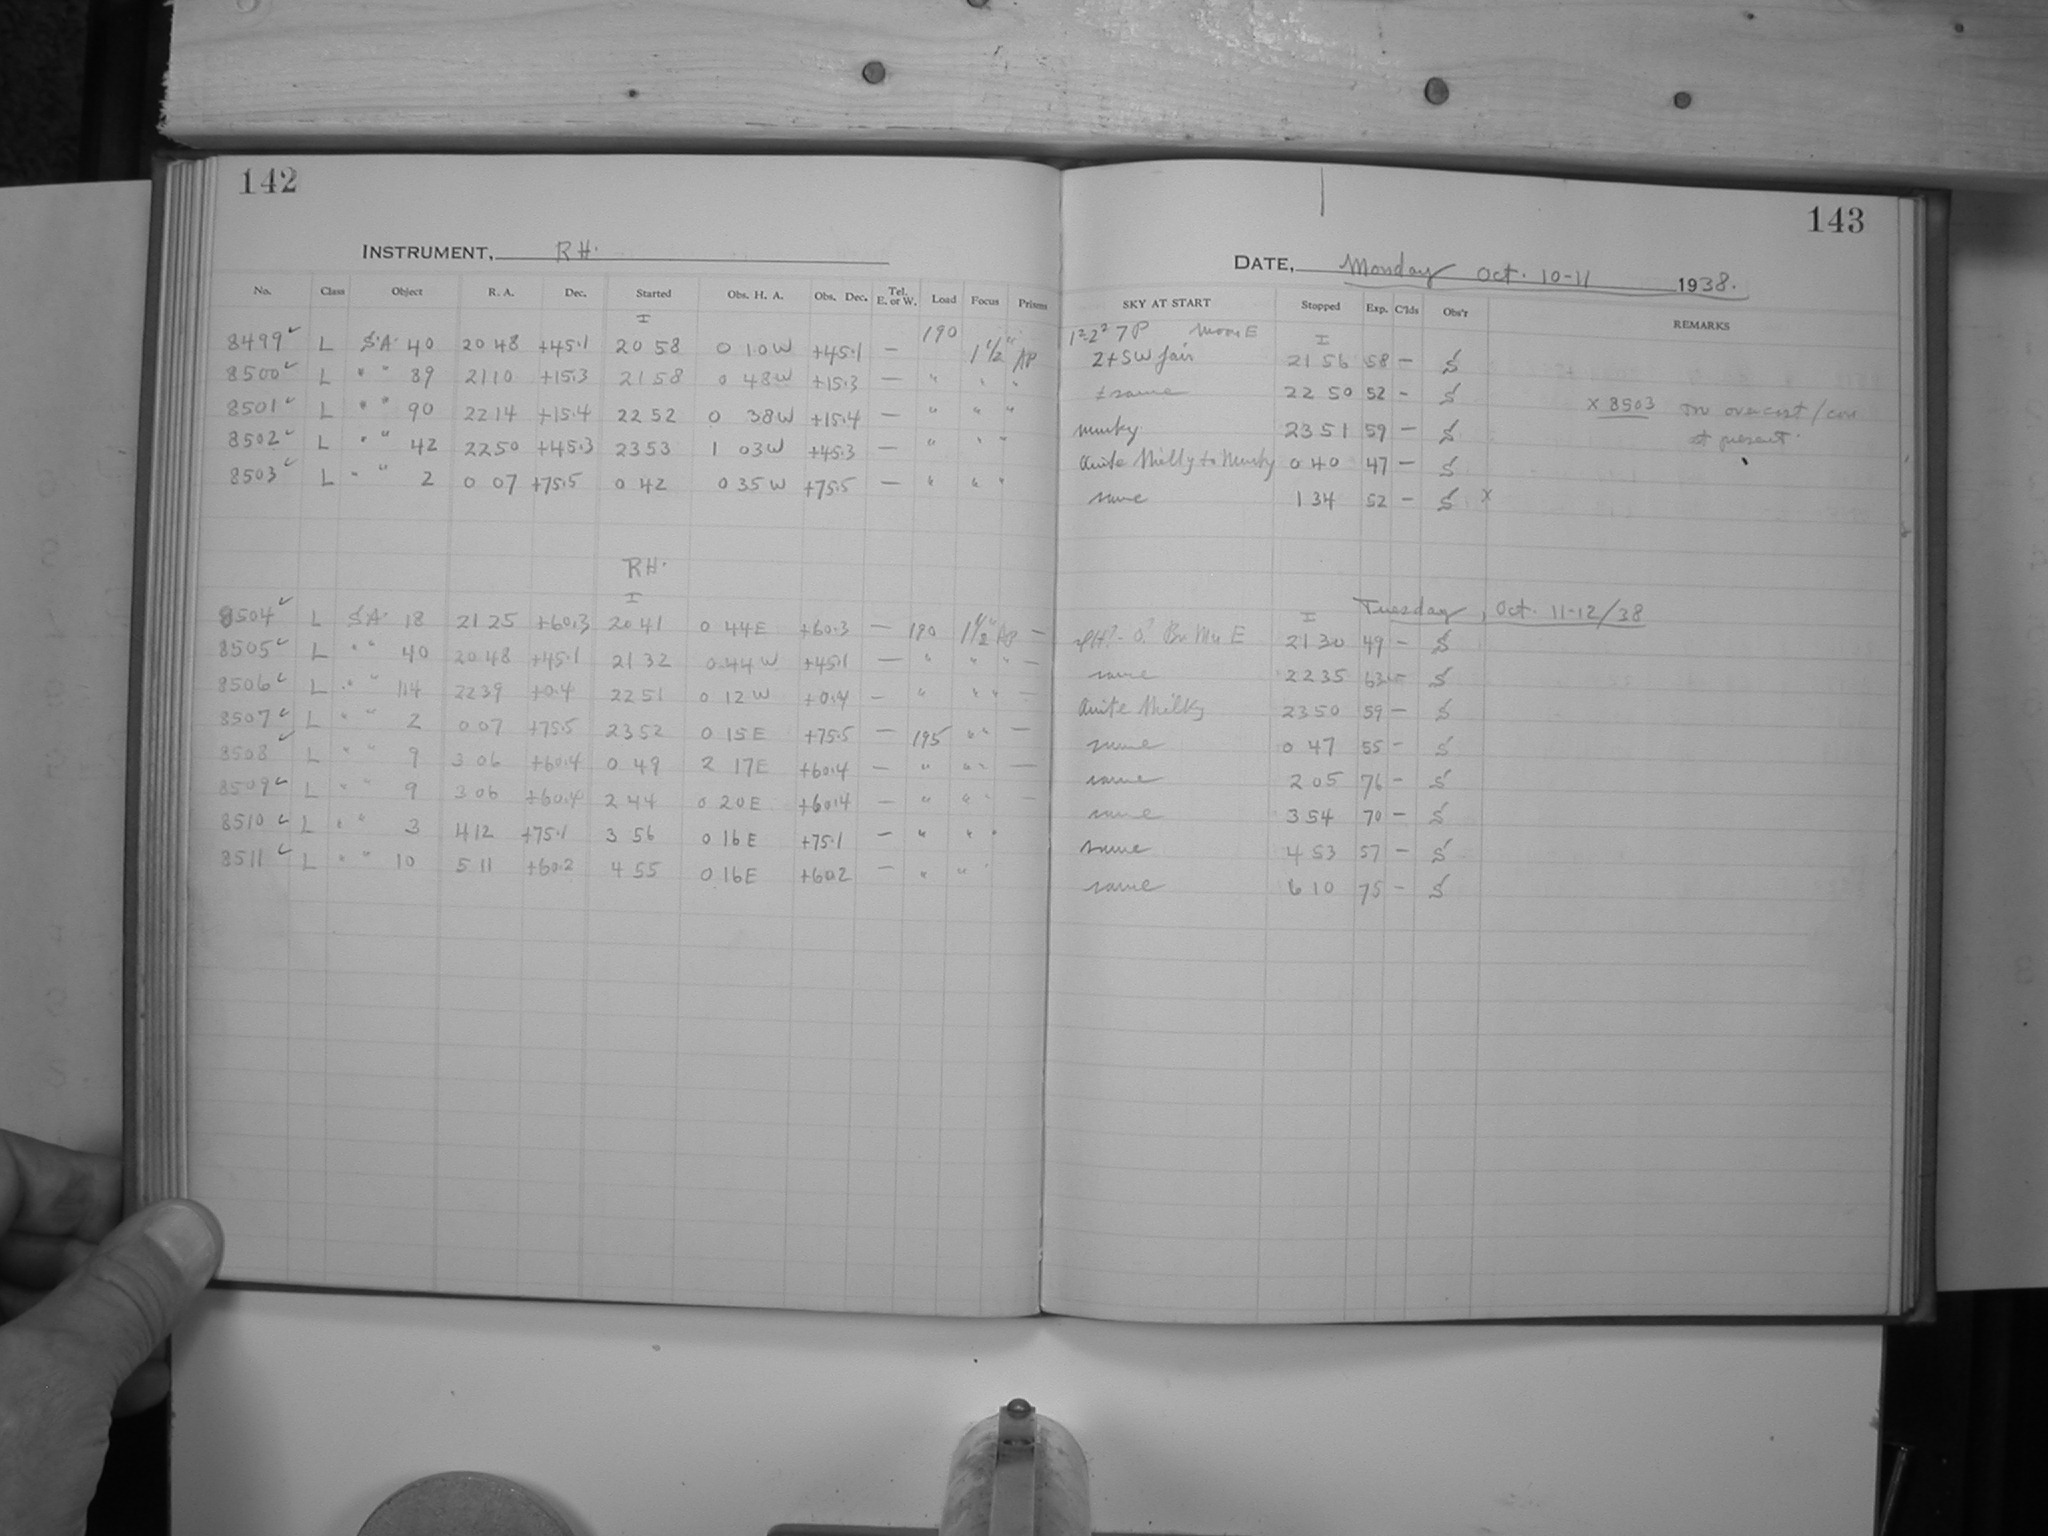 142
INSTRUMENT, RH.
No. Class Object R. A. Dec. Started Obs. H. A. Obs. Dec. Tel. E. or W. Load Focus Prisms
I
8499 ✓ L S.A. 40 20 48 +45.1 20 58 0 10W +45.1 — 190 1 1/2" AP
8500 ✓ L " " 89 21 10 +15.3 21 58 0 48W +15.3 — " " "
8501 ✓ L " " 90 22 14 +15.4 22 52 0 38W +15.4 — " " "
8502 ✓ L " " 42 22 50 +45.3 23 53 1 03W +45.3 — " " "
8503 ✓ L " " 2 0 07 +75.5 0 42 0 35W +75.5 — " " "
RH.
I
8504 ✓ L S.A. 18 21 25 +60.3 20 41 0 44E +60.3 — 190 1 1/2" AP —
8505 ✓ L " " 40 20 48 +45.1 21 32 0 44W +45.1 — " " " —
8506 ✓ L " " 114 22 39 +0.4 22 51 0 12W +0.4 — " " " —
8507 ✓ L " " 2 0 07 +75.5 23 52 0 15E +75.5 — 195 " " —
8508 ✓ L " " 9 3 06 +60.4 0 49 2 17E +60.4 — " " " —
8509 ✓ L " " 9 3 06 +60.4 2 44 0 20E +60.4 — " " " —
8510 ✓ L " " 3 4 12 +75.1 3 56 0 16E +75.1 — " " "
8511 ✓ L " " 10 5 11 +60.2 4 55 0 16E +60.2 — " " "
143
DATE, Monday Oct. 10-11 1938.
SKY AT START Stopped Exp. C'lds Obs'r REMARKS
7P Moon E I
2+SW fair 21 56 58 — S
± same 22 50 52 — S x 8503 overcast
murky 23 51 59 — S at present.
Quite Milky to Murky 0 40 47 — S
same 1 34 52 — S x
I Tuesday, Oct. 11-12/38
E 21 30 49 — S
same 22 35 63 — S
Quite Milky 23 50 59 — S
same 0 47 55 — S
same 2 05 76 — S
same 3 54 70 — S
same 4 53 57 — S
same 6 10 75 — S